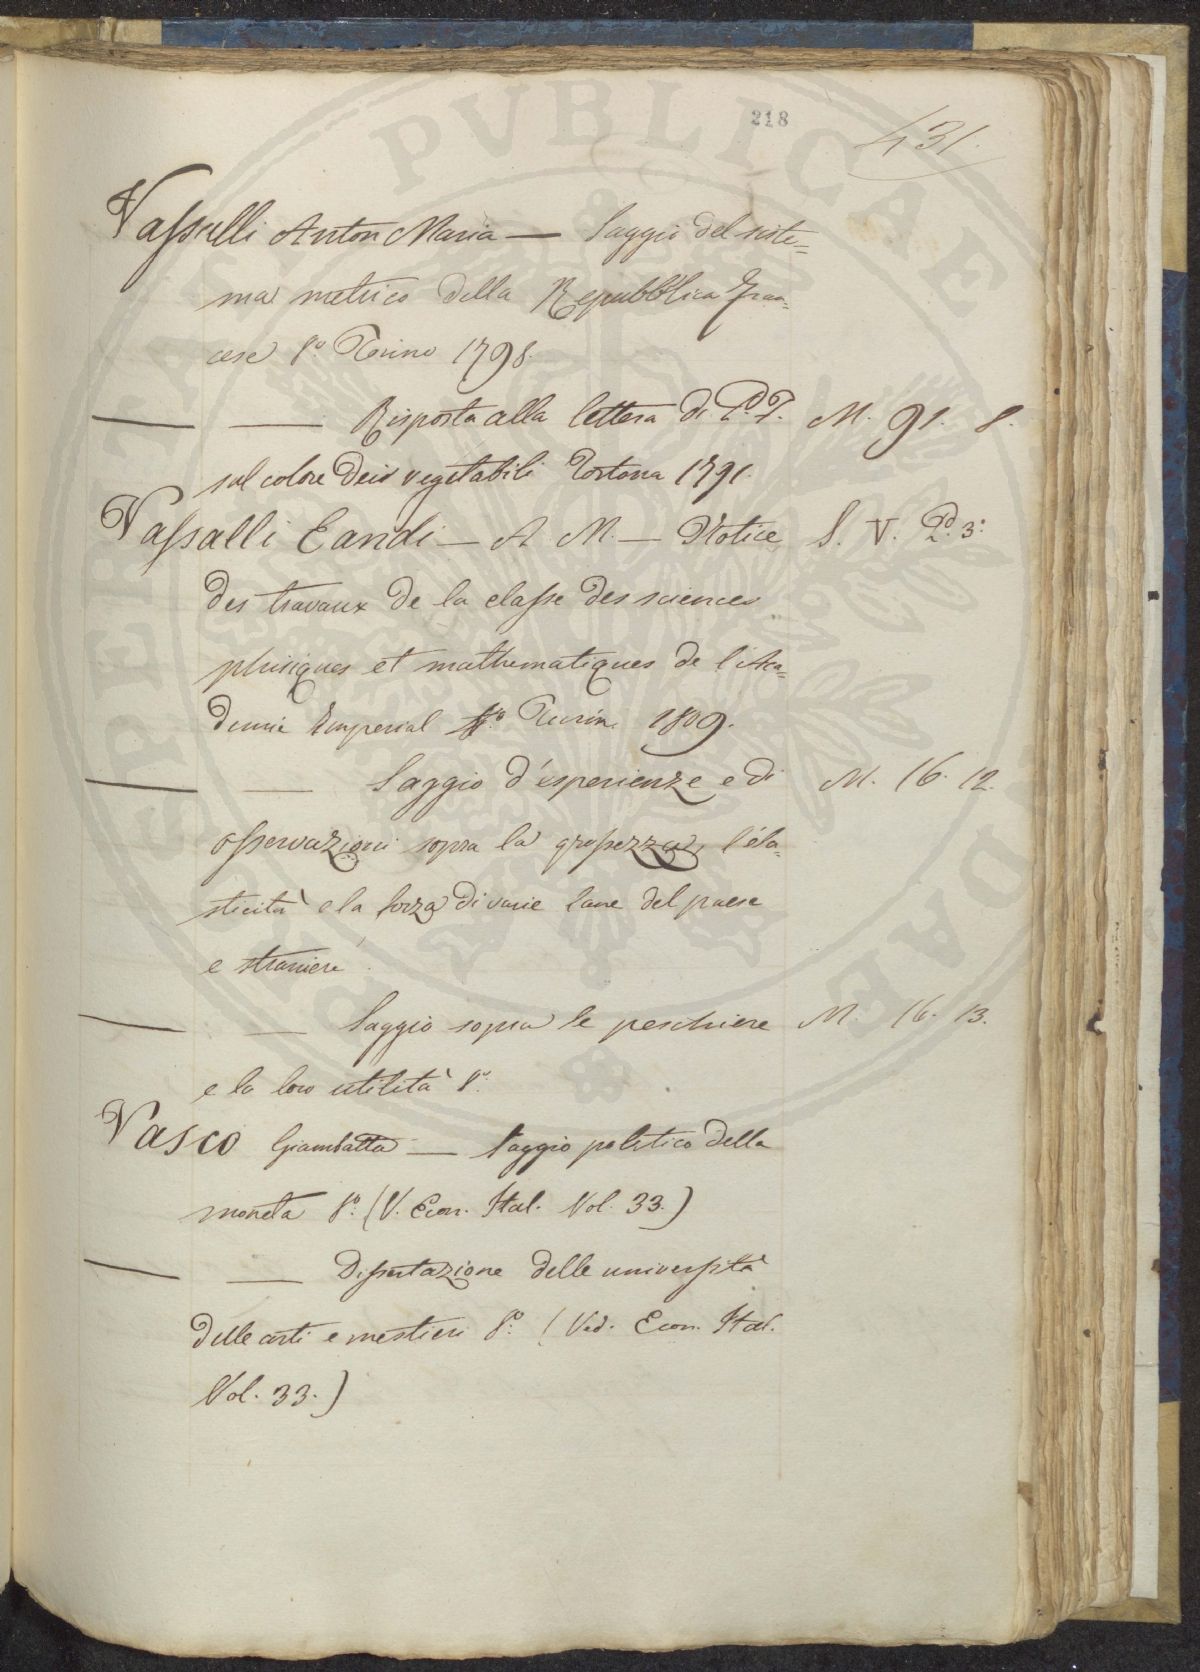 218
431.
Vassalli Anton Maria — Saggio del siste=
ma metrico della Repubblica Fran=
cese 8.º Torino 1798.
— — Risposta alla lettera di P. T. M. 91. 8.
sul colore dei vegetabili Tortona 1791.
Vassalli Eandi — A. M. — Notice S. V. P.d 3.
des travaux de la classe des sciences
phisiques et mathematiques de l'Aca=
demie Imperial 4º Turin. 1809.
— — Saggio d'esperienze e di M. 16. 12.
osservazioni sopra la grossezza, l'éla=
sticità e la forza di varie lane del paese
e straniere
— — Saggio sopra le peschiere M. 16. 13.
e la loro utilità 8º
Vasco Giambatta — Saggio politico della
moneta 8.º (V. Econ. Ital. Vol. 33.)
— — Dissertazione delle università
delle arti e mestieri 8.º (Ved. Econ. Ital.
Vol. 33.)